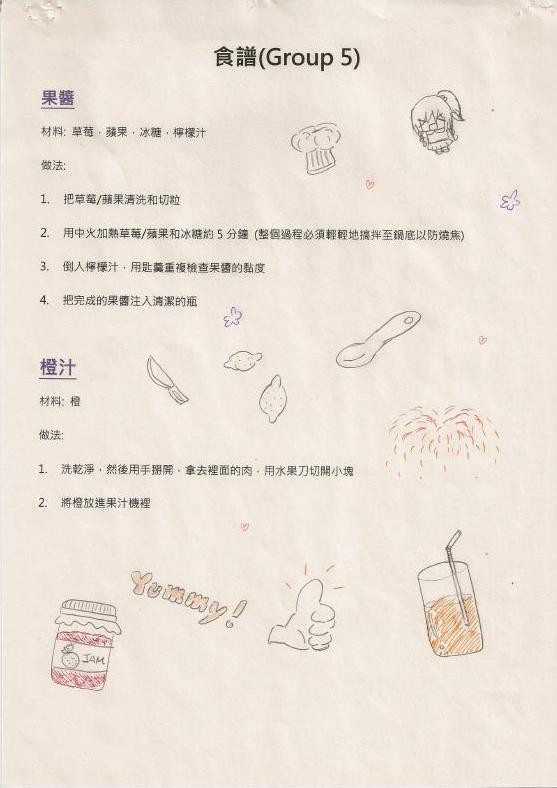 食譜(Group 5)
果醬
材料: 草莓，蘋果，冰糖，檸檬汁
做法:
1. 把草莓/蘋果清洗和切粒
2. 用中火加熱草莓/蘋果和冰糖約 5 分鐘 (整個過程必須輕輕地攪拌至鍋底以防燒焦)
3. 倒入檸檬汁，用匙羹重複檢查果醬的黏度
4. 把完成的果醬注入清潔的瓶
橙汁
材料: 橙
做法:
1. 洗乾淨，然後用手掰開，拿去裡面的肉，用水果刀切開小塊
2. 將橙放進果汁機裡
Yummy!
JAM